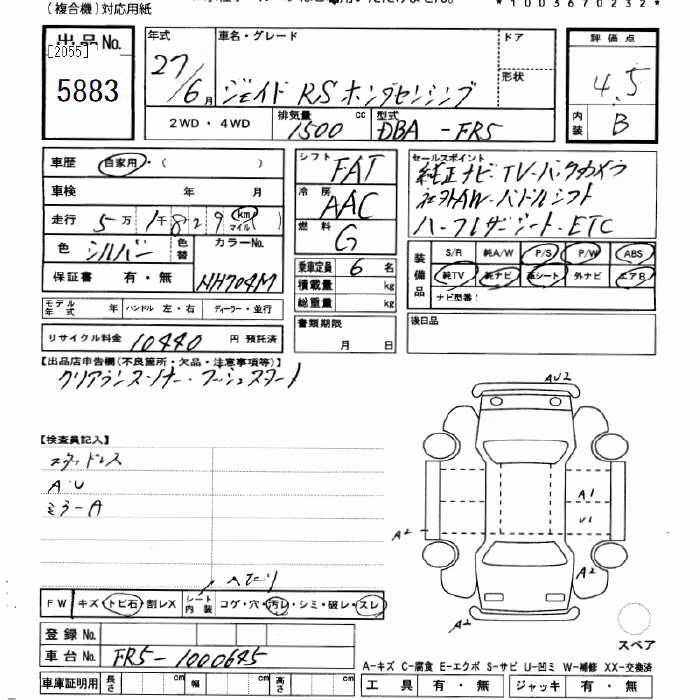 (複合機)対応用紙
*1003670232*
出品 No.
[2055]
5883
年式 27/6月
車名・グレード ジェイド RS ホンダセンシング
ドア
形状
2WD・4WD
排気量 1500 cc
型式 DBA-FR5
評価点 4.5
内装 B
車歴 自家用・( )
車検 年 月
走行 5万1千829 km マイル ( )
色 シルバー
色替
カラーNo. NH704M
保証書 有・無
モデル年式 年
ハンドル 左・右
ディーラー・並行
リサイクル料金 10440 円 預託済
シフト FAT
冷房 AAC
燃料 G
乗車定員 6 名
積載量 kg
総重量 kg
書類期限
月 日
セールスポイント
純正ナビ・TV・バックカメラ
社外AW・パドルシフト
ハーフレザーシート・ETC
装備品
S/R 純A/W P/S P/W ABS
純TV 純ナビ 革シート 外ナビ エアB
ナビ型番:
後日品
【出品店申告欄(不良箇所・欠品・注意事項等)】
クリアランスソナー・プッシュスタート
【検査員記入】
スタッドレス
A・U
ミラーA
AU2
A1
U1
A2
A2
A2
FW キズ・トビ石・割レX
シート内装 コゲ・穴・汚レ・シミ・破レ・スレ
登録 No.
車台 No. FR5-1000645
車庫証明用 長さ cm 幅 cm 高さ cm
スペア
A-キズ C-腐食 E-エクボ S-サビ U-凹ミ W-補修 XX-交換済
工具 有・無 ジャッキ 有・無